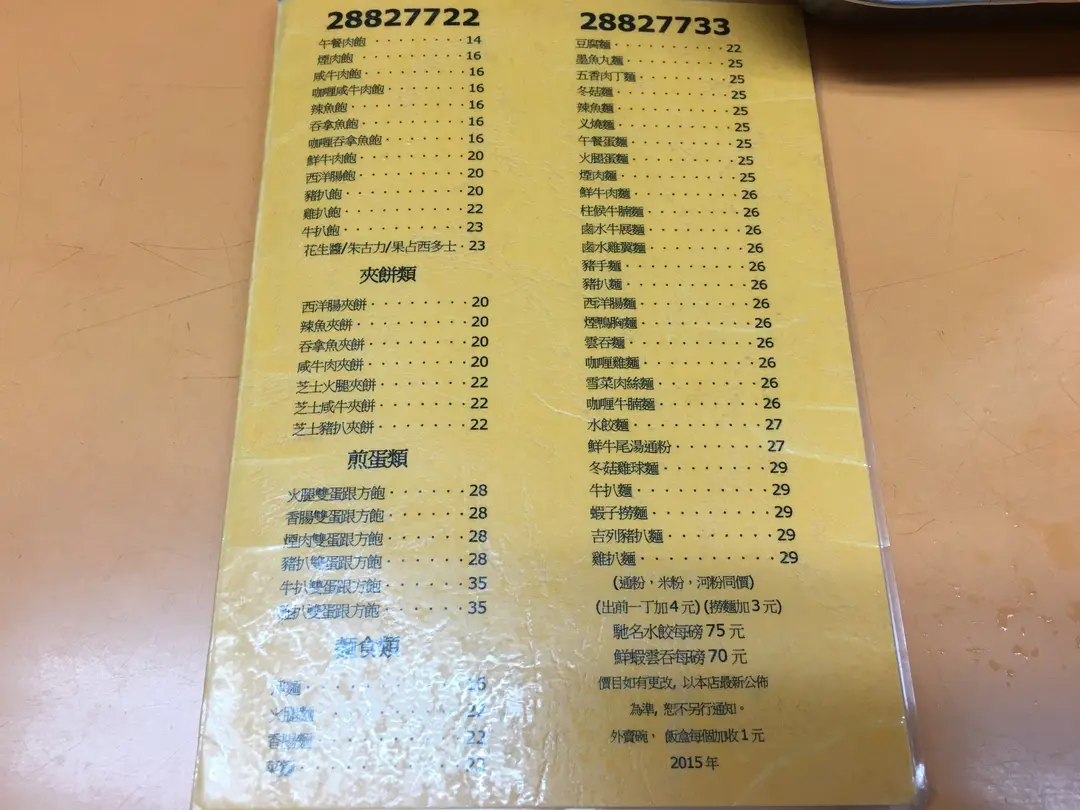 28827722
午餐肉飽 · · · · · · · · 14
煙肉飽 · · · · · · · · · 16
咸牛肉飽 · · · · · · · · 16
咖喱咸牛肉飽 · · · · · · 16
辣魚飽 · · · · · · · · · 16
吞拿魚飽 · · · · · · · · 16
咖喱吞拿魚飽 · · · · · · 16
鮮牛肉飽 · · · · · · · · 20
西洋腸飽 · · · · · · · · 20
豬扒飽 · · · · · · · · · 20
雞扒飽 · · · · · · · · · 22
牛扒飽 · · · · · · · · · 23
花生醬/朱古力/果占西多士 · 23
夾餅類
西洋腸夾餅 · · · · · · · 20
辣魚夾餅 · · · · · · · · 20
吞拿魚夾餅 · · · · · · · 20
咸牛肉夾餅 · · · · · · · 20
芝士火腿夾餅 · · · · · · 22
芝士咸牛夾餅 · · · · · · 22
芝士豬扒夾餅 · · · · · · 22
煎蛋類
火腿雙蛋跟方飽 · · · · · · 28
香腸雙蛋跟方飽 · · · · · · 28
煙肉雙蛋跟方飽 · · · · · · 28
豬扒雙蛋跟方飽 · · · · · · 28
牛扒雙蛋跟方飽 · · · · · · 35
扒雙蛋跟方飽 · · · · · · 35
麵食類
麵 · · · · · · · · · 16
火腿麵 · · · · · · · · · 22
香腸麵 · · · · · · · · · 22
28827733
豆腐麵 · · · · · · · · · 22
墨魚丸麵 · · · · · · · · 25
五香肉丁麵 · · · · · · · 25
冬菇麵 · · · · · · · · · 25
辣魚麵 · · · · · · · · · 25
义燒麵 · · · · · · · · · 25
午餐蛋麵 · · · · · · · · 25
火腿蛋麵 · · · · · · · · 25
煙肉麵 · · · · · · · · · 25
鮮牛肉麵 · · · · · · · · 26
柱候牛腩麵 · · · · · · · 26
鹵水牛展麵 · · · · · · · 26
鹵水雞翼麵 · · · · · · · 26
豬手麵 · · · · · · · · · 26
豬扒麵 · · · · · · · · · 26
西洋腸麵 · · · · · · · · 26
煙鴨胸麵 · · · · · · · · 26
雲吞麵 · · · · · · · · · 26
咖喱雞麵 · · · · · · · · 26
雪菜肉絲麵 · · · · · · · 26
咖喱牛腩麵 · · · · · · · 26
水餃麵 · · · · · · · · · 27
鮮牛尾湯通粉 · · · · · · 27
冬菇雞球麵 · · · · · · · 29
牛扒麵 · · · · · · · · · 29
蝦子撈麵 · · · · · · · · 29
吉列豬扒麵 · · · · · · · 29
雞扒麵 · · · · · · · · · 29
(通粉，米粉，河粉同價)
(出前一丁加 4 元) (撈麵加 3 元)
馳名水餃每磅 75 元
鮮蝦雲吞每磅 70 元
價目如有更改, 以本店最新公佈
為準, 恕不另行通知。
外賣碗， 飯盒每個加收 1 元
2015 年